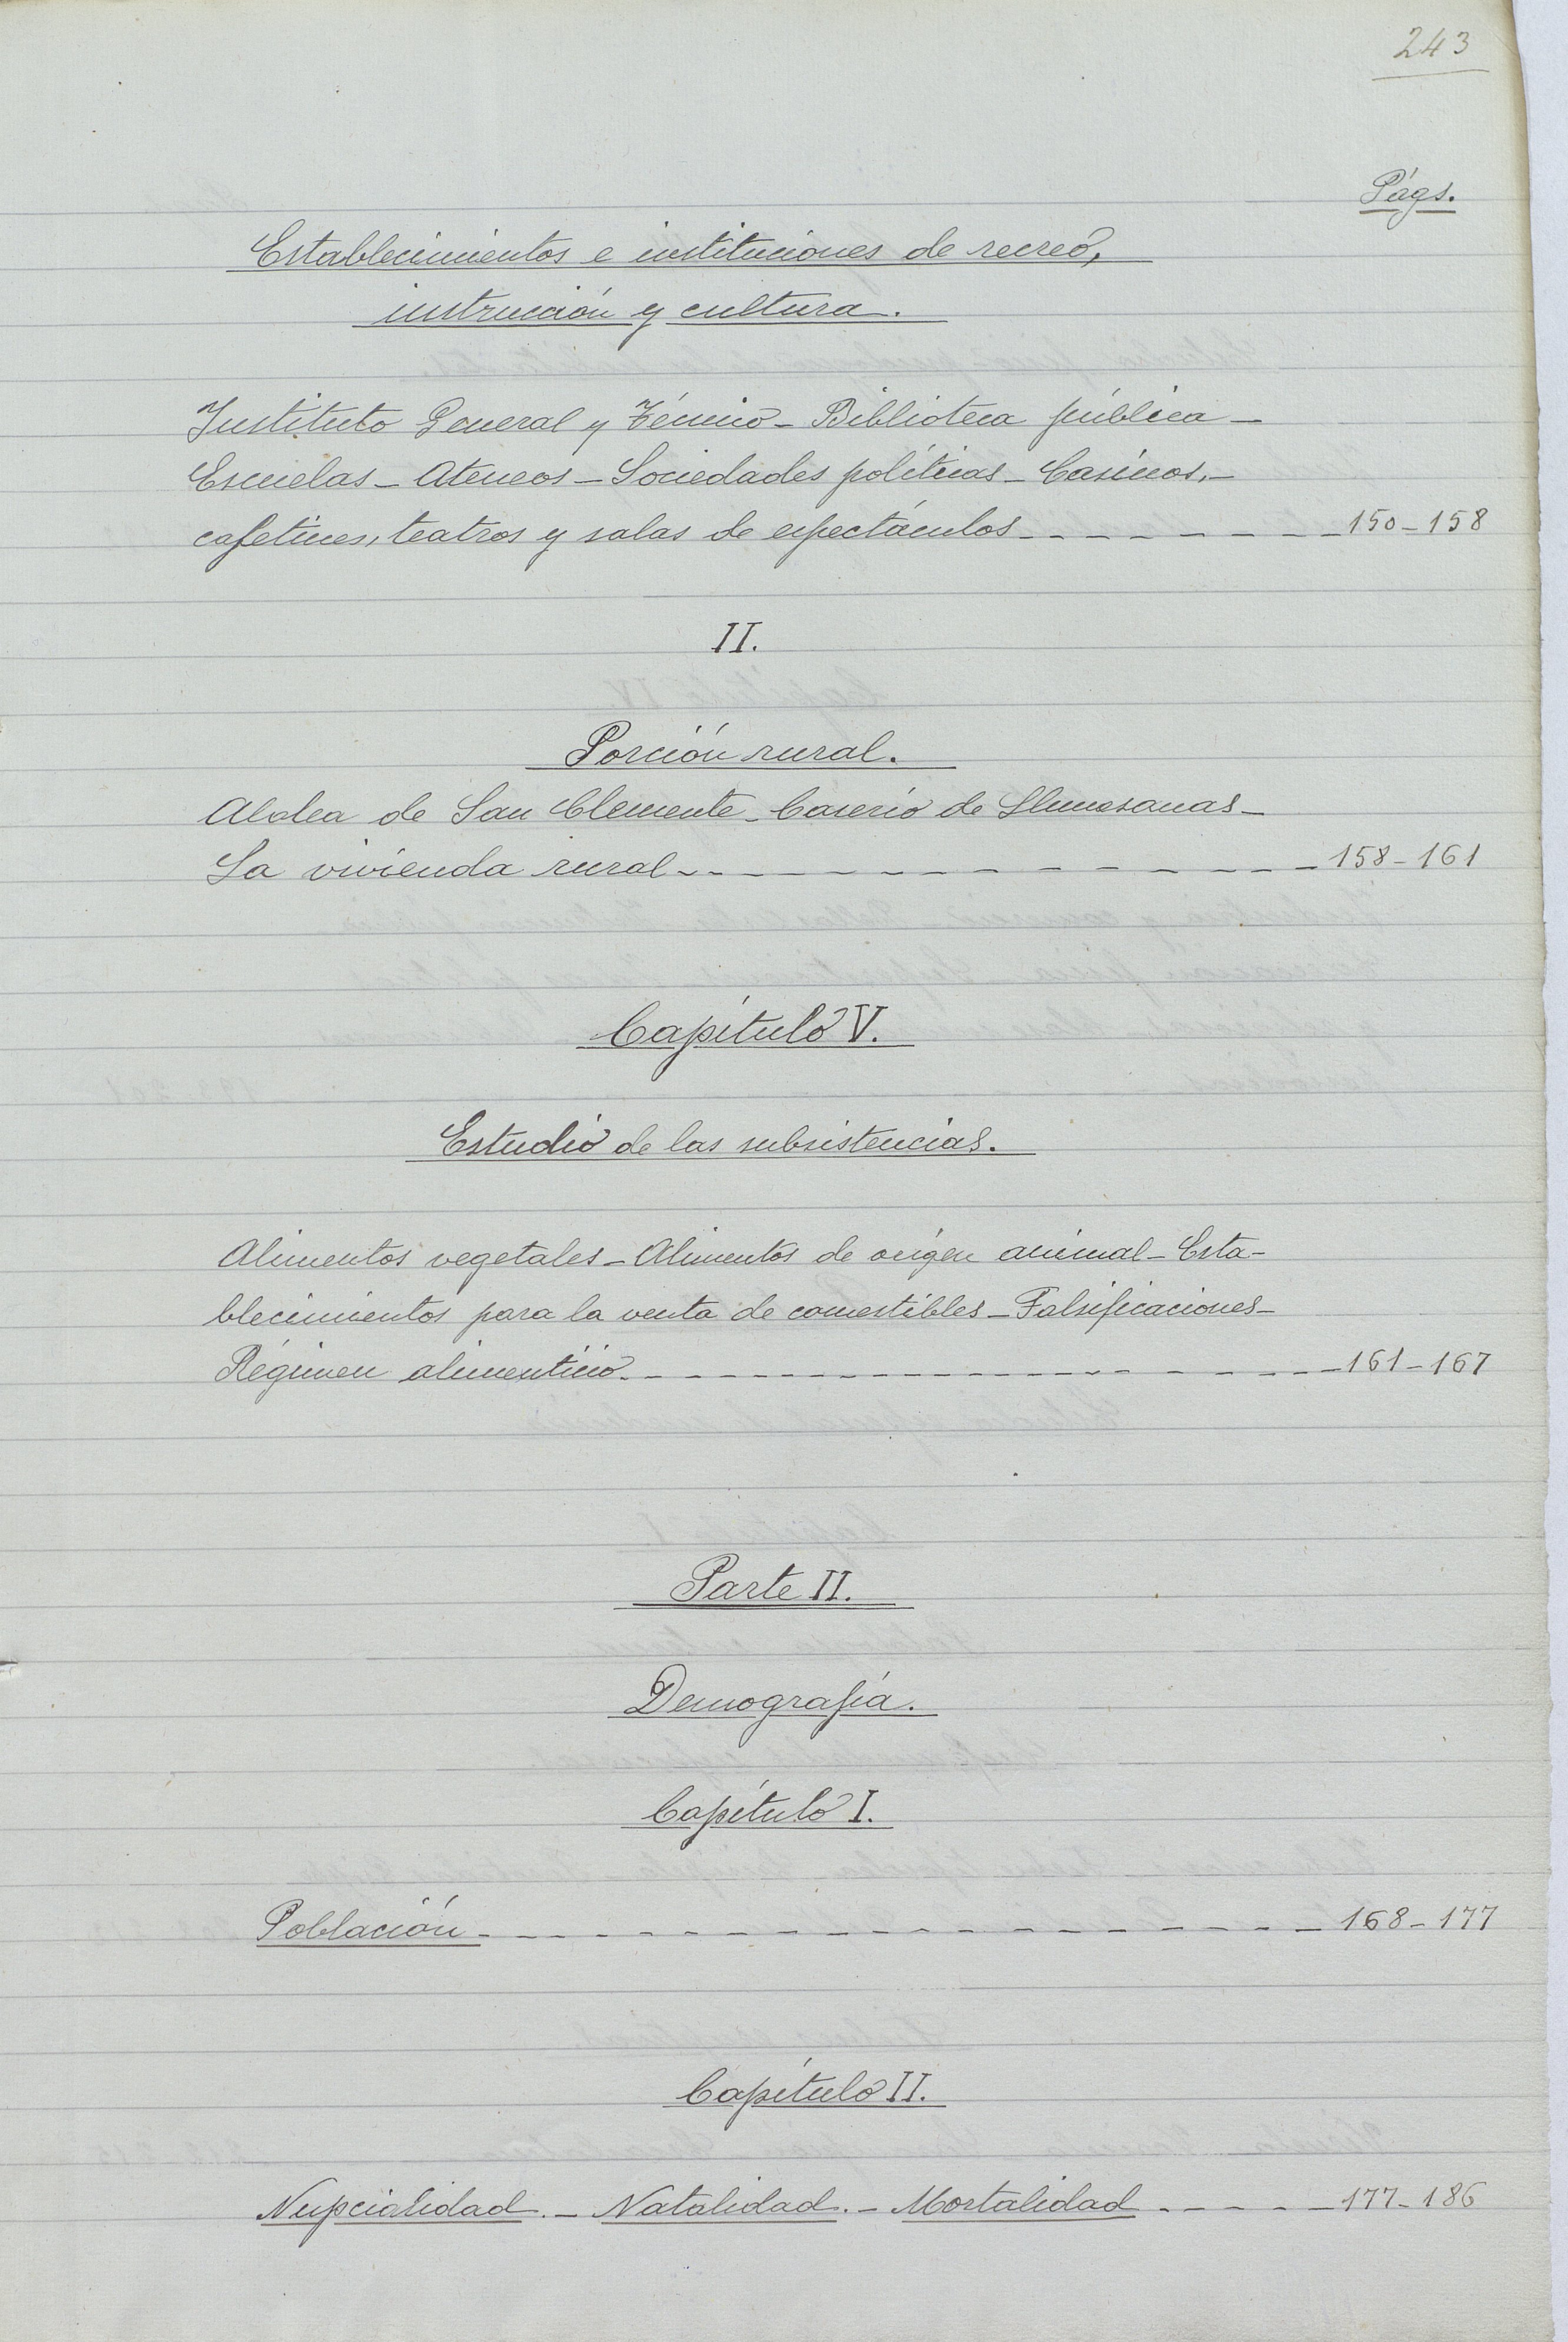 243
Págs.
Establecimientos e instituciones de recreo,
instrucción y cultura.
Instituto General y Técnico - Biblioteca pública -
Escuelas - Ateneos - Sociedades políticas - Casinos, -
cafetines, teatros y salas de espectáculos - - - - - - - - 150-158
II.
Porción rural.
Aldea de San Clemente - Caserío de Llumesanas -
La vivienda rural - - - - - - - - - - - - 158-161
Capítulo V.
Estudio de las subsistencias.
Alimentos vegetales - Alimentos de origen animal - Esta-
blecimientos para la venta de comestibles - Falsificaciones -
Régimen alimenticio - - - - - - - - - - - - - - - 161-167
Parte II.
Demografía.
Capítulo I.
Población - - - - - - - - - - - - - - - - 168-177
Capítulo II.
Nupcialidad. - Natalidad. - Mortalidad - - - - - 177-186